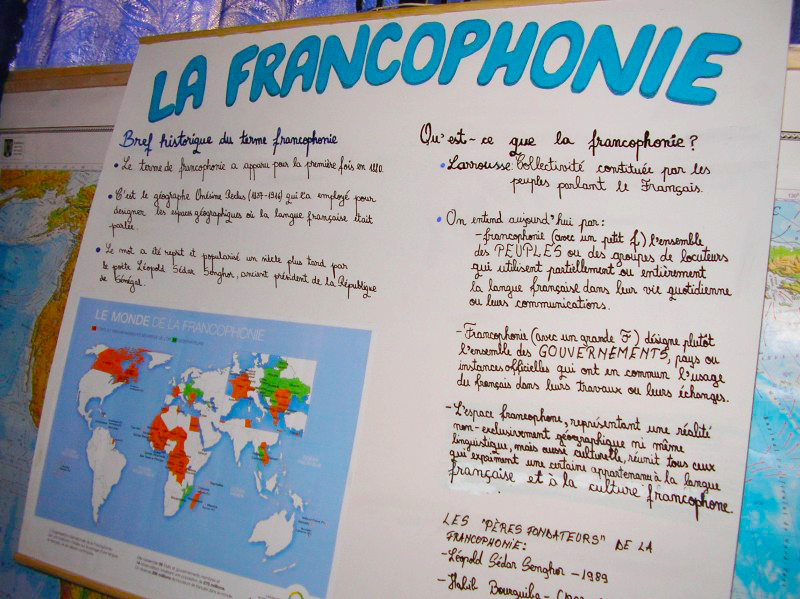 LA FRANCOPHONIE
Bref historique du terme francophonie
• Le terme de francophonie a apparu pour la première fois en
• C'est le géographe Onésime Reclus (1837-1916) qui l'a employé pour
designer les espaces géographiques où la langue française était
parlée.
• Le mot a été reprit et popularisé un siècle plus tard par
le poète Léopold Sédar Senghor, ancient président de la République
de Sénégal.
LE MONDE DE LA FRANCOPHONIE
Qu'est-ce que la francophonie?
• Larrousse: Collectivité constituée par les
peuples parlant le Français.
• On entend aujourd'hui par:
- francophonie (avec un petit f) l'ensemble
des PEUPLES ou des groupes de locuteurs
qui utilisent partiellement ou entièrement
la langue française dans leur vie quotidienne
ou leurs communications.
- Francophonie (avec un grande F) désigne plutôt
l'ensemble des GOUVERNEMENTS, pays ou
instances officielles qui ont en commun l'usage
du français dans leurs travaux ou leurs échanges.
- L'espace francophone, représentant une réalité
non-exclusivement géographique ni même
linguistique, mais aussi culturelle, réunit tous ceux
qui expriment une certaine appartenance à la langue
française et à la culture francophone
LES "PÈRES FONDATEURS" DE LA
FRANCOPHONIE:
- Léopold Sédar Senghor - 1989
- Habib Bourguiba -